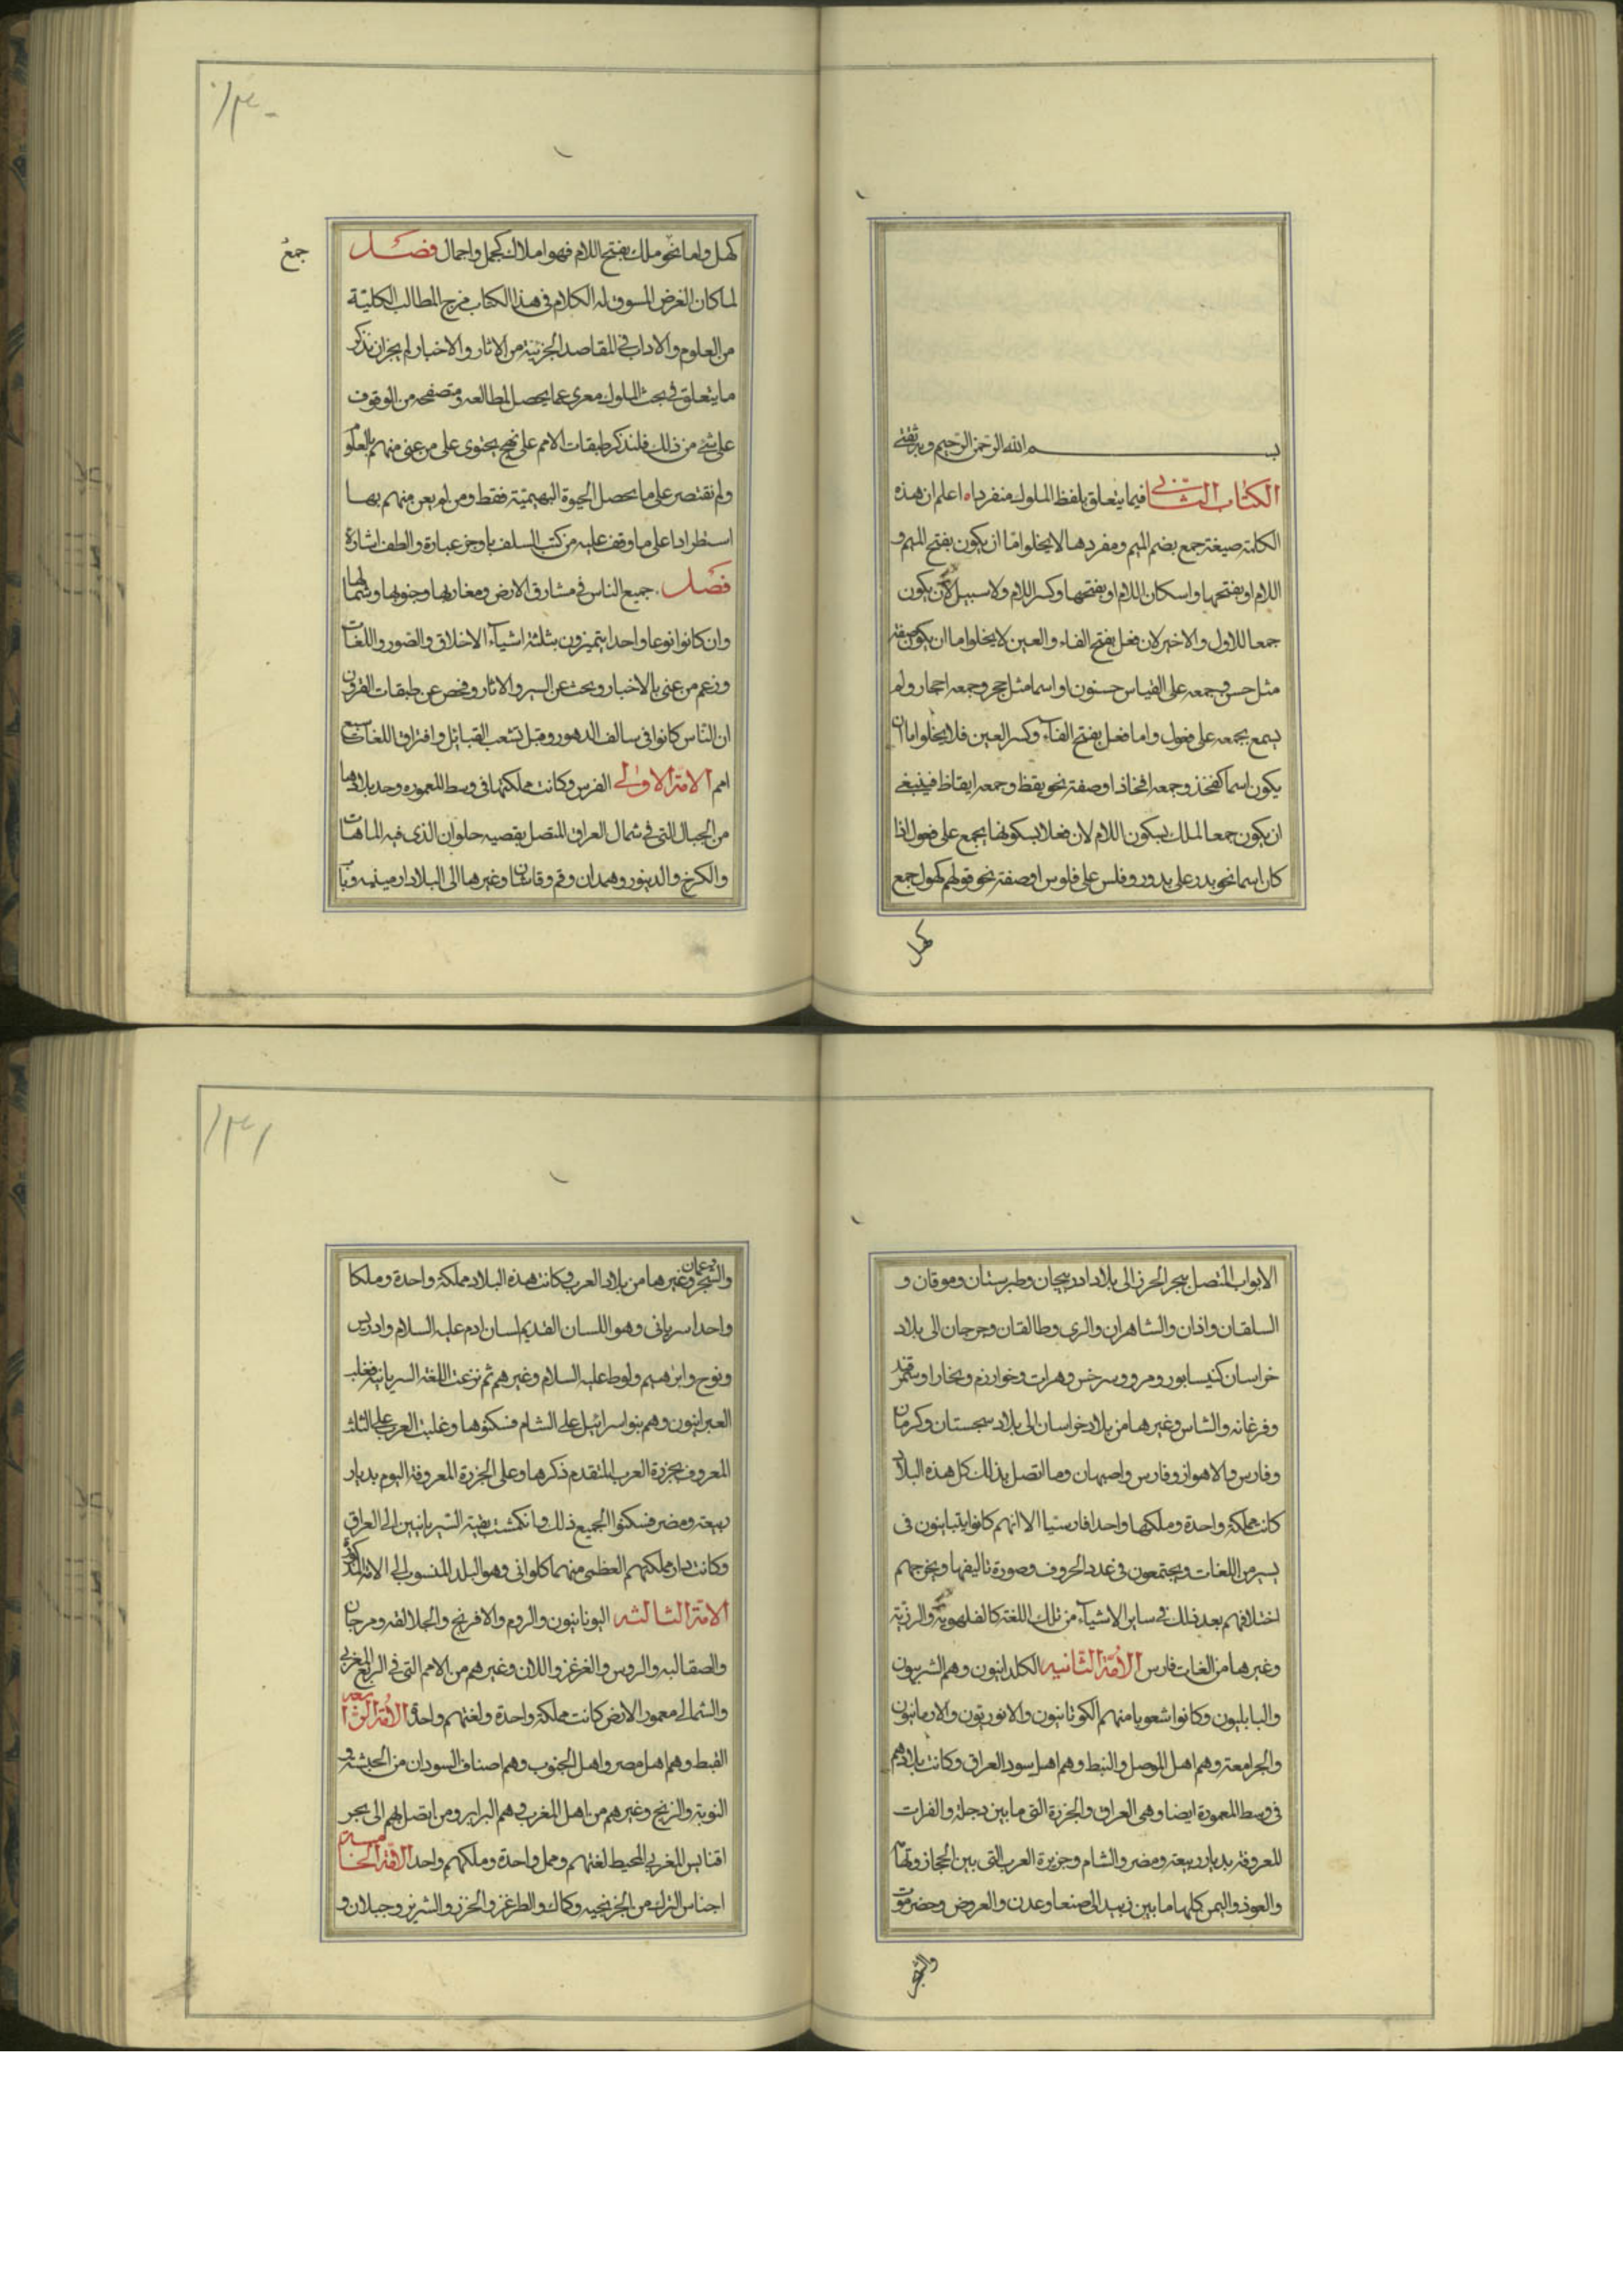 بسم الله الرحمن الرحيم وبه ثقتي
الكتاب الثاني فيما يتعلق بلفظ الملوك منفردا ه اعلم ان هذه
الكلمة صيغة جمع بضم الميم ومفردها لا يخلوا اما ان يكون بفتح الميم و
اللام او بفتحها واسكان اللام او بفتحها وكسر اللام ولا سبيل لان يكون
جمعا للاول والاخير لان فعل بفتح الفاء والعين لا يخلوا اما ان يكون صفة
مثل حسن وجمعه على القياس حسنون او اسما مثل حجر وجمعه احجار ولم
يسمع بجمعه على فعول واما فعل بفتح الفاء وكسر العين فلا يخلوا اما ان
يكون اسما كفخذ وجمعه افخاذا وصفة نحو يقظ وجمعه ايقاظ فينبغي
ان يكون جمعا لملك بسكون اللام لان فعلا بسكونها يجمع على فعول اذا
كان اسما نحو بدر على بدور وفلس على فلوس او صفة نحو قولهم كهول جمع
كهل
١٣٠
كهل واما نحو ملك بفتح اللام فهو املاك كجمل واجمال فصل
جمع
لما كان الغرض المسوق له الكلام في هذا الكتاب مزج المطالب الكلية
من العلوم والاداب في المقاصد الجزئية من الاثار والاخبار لم يجز ان نذكر
ما يتعلق في بحث الملوك معرى عما يحصل لمطالعه ومتصفحه من الوقوف
على شئ من ذلك فلنذكر طبقات الامم على نهج يحتوى على من عنى منهم بالعلوم
ولم نقتصر على ما يحصل الحيوة البهيمية فقط ومن لم يعن منهم بها
استطرادا على ما وقف عليه من كتب السلف باوجز عبارة والطف اشارة
فصل جميع الناس في مشارق الارض ومغاربها وجنوبها وشمالها
وان كانوا نوعا واحدا يتميزون بثلثة اشياء الاخلاق والصور واللغات
وزعم من عنى بالاخبار وبحث عن السير والاثار وفحص عن طبقات القرون
ان الناس كانوا في سالف الدهور وقبل تشعب القبائل وافتراق اللغات سبع
امم الامة الاولى الفرس وكانت مملكتها في وسط المعموره وحد بلادها
من الجبال التي في شمال العراق المتصل بقصبه حلوان الذى فيه الماهات
والكرخ والدينور وهمدان وقم وقاشان وغيرها الى البلاد ارمينيه وباب
الابواب المتصل ببحر الخرز الى بلاد ادربيجان وطبرستان وموقان و
السلقان واذان والشاهران والرى وطالقان وجرجان الى بلاد
خراسان كنيسابور ومرو وسرخس وهرات وخوارزم وبخارا وسمرقند
وفرغانه والشاس وغيرها من بلاد خراسان الى بلاد سجستان وكرمان
وفارس والاهواز وفارس واصبهان وما اتصل بذلك كل هذه البلاد
كانت مملكة واحدة وملكها واحدا فارسيا الا انهم كانوا يتباينون في
يسير من اللغات ويجتمعون في عدد الحروف وصورة تاليفها ويخرجهم
اختلافهم بعد ذلك في ساير الاشياء من تلك اللغة كالفلهوية والرزية
وغيرها من الغات فارس الامة الثانيه الكلدانيون وهم الشريبون
والبابليون وكانوا شعوبا منهم الكوثانيون والاثوريون والارمانيون
والجرامعة وهم اهل الموصل والنبط وهم اهل سود العراق وكانت بلادهم
في وسط المعمورة ايضا وهي العراق والجزرة التي ما بين دجلة والفرات
المعروفة بديار ربيعة ومضر والشام وجزيرة العرب التي بين الحجاز وتهامه
والعوذ واليمن كلها ما بين زبيد الى صنعا وعدن والعروض وحضرموت
والشجر
١٣١
والشجر وعمان وغيرها من بلاد العرب وكانت هذه البلاد مملكة واحدة وملكا
واحدا سريانى وهو اللسان القديم لسان ادم عليه السلام وادريس
ونوح وابرهيم ولوط عليه السلام وغيرهم ثم نزعت اللغة السريانية فغلب
العبرانيون وهم بنوا سرائيل على الشام فسكنوها وغلبت العرب على الثلث
المعروف بجزرة العرب المتقدم ذكرها وعلى الجزرة المعروفة اليوم بديار
ربيعة ومضر فسكنوا الجميع ذلك وانكمشت بقية السريانيين الى العراق
وكانت دار مملكتهم العظمى منهما كلوانى وهو البلد المنسوب الى الامة المذكورة
الامة الثالثه اليونانيون والروم والافرنج والجلالقه ومرجان
والصقالبه والروس والغرغز واللان وغيرهم من الامم التي في الربع المغربي
والشمالى معمور الارض كانت مملكة واحدة ولغتهم واحدة الامة الرابعه
القبط وهم اهل مصر واهل الجنوب وهم اصناف السودان من الحبشة و
النوبة والزنج وغيرهم من اهل المغرب وهم البرابر ومن اتصل بهم الى بحر
اقنابس المغربي المحيط لغتهم ومل واحدة وملكهم واحد الامة الخامسة
اجناس الترك من الخزنجيه وكماك والطرغز والخزز والشرير وجيلان و